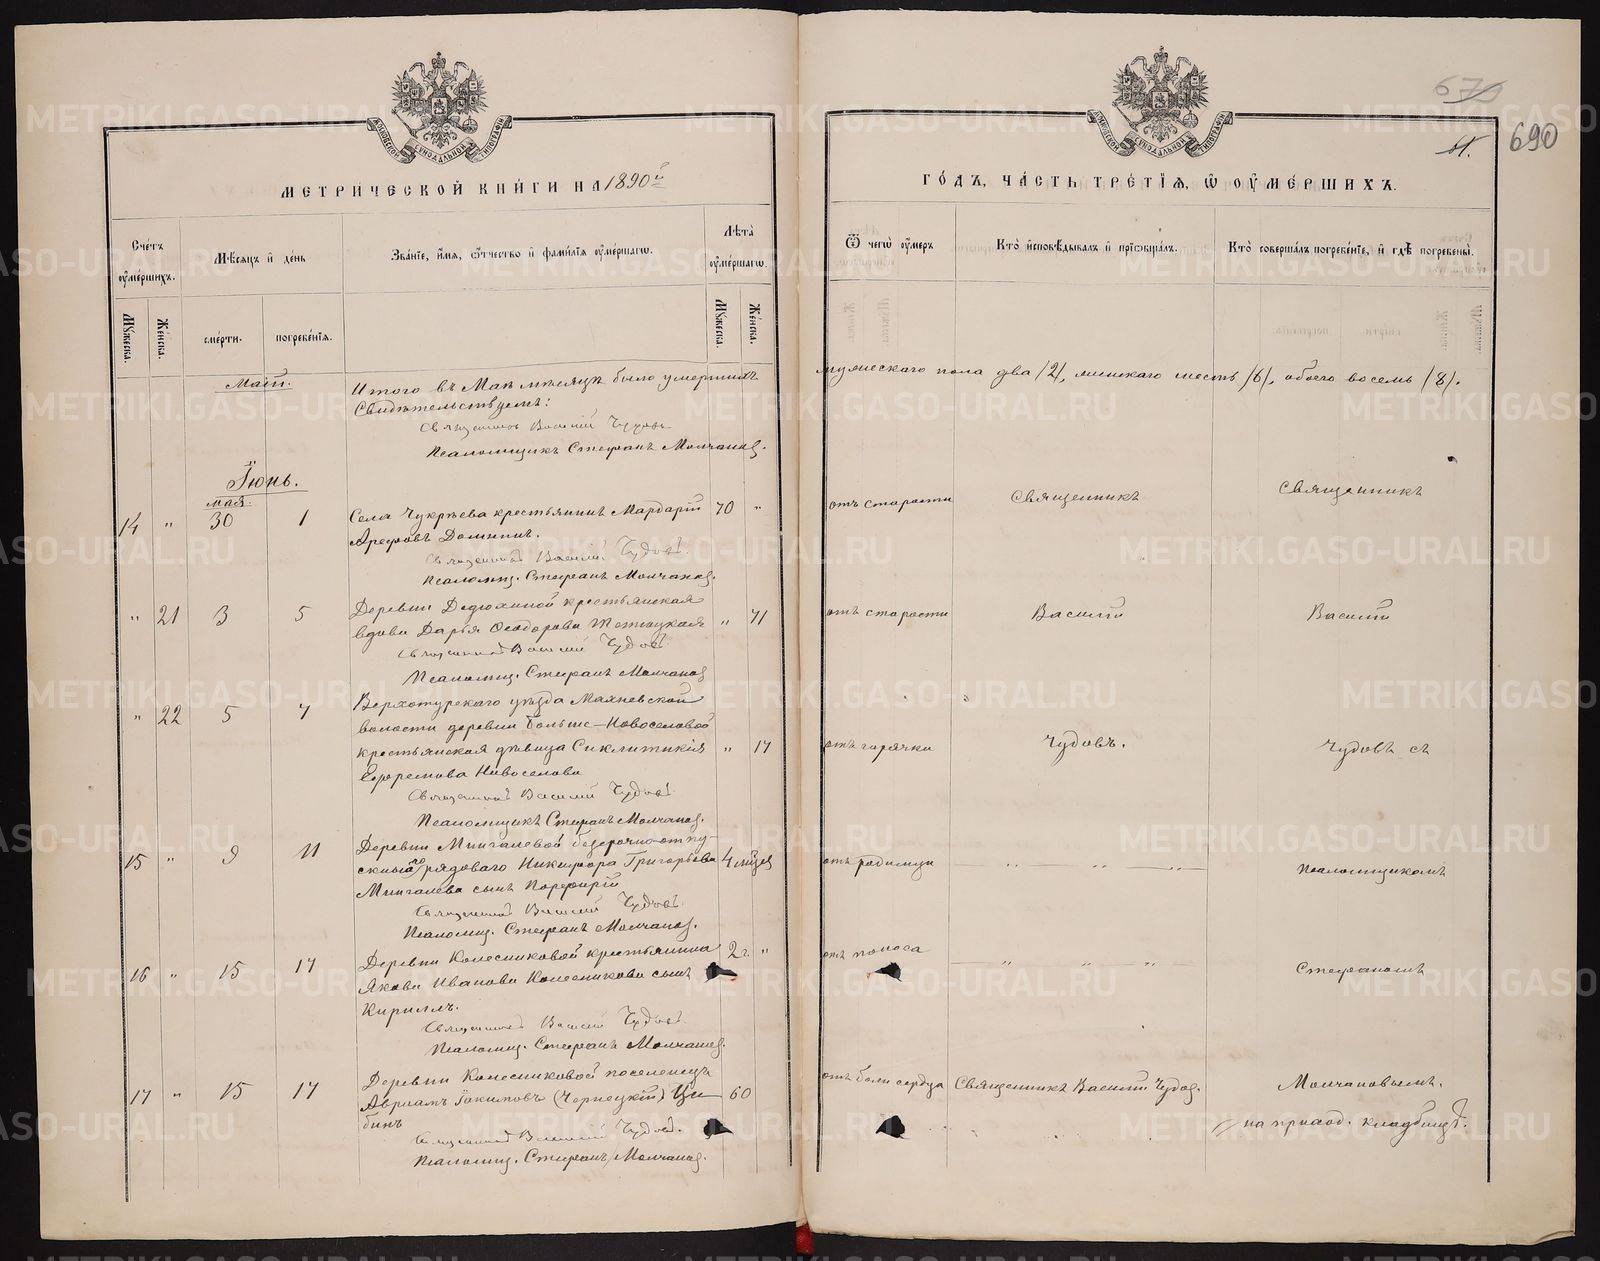 МЕТРИЧЕСКОЙ КНИГИ НА 1890й
Счетъ оумершихъ.
Мѣсяцъ и день
Званіе, имя, отчество и фамилія оумершагѡ.
Лѣта оумершагѡ.
Мꙋжеска.
Женска.
смерти.
погребенія.
Мꙋжеска.
Женска.
Май.
Итого въ Маѣ мѣсяцѣ было умершихъ
Свидѣтельствуемъ:
Священникъ Василій Чудовъ
Псаломщикъ Стефанъ Молчановъ.
Іюнь.
мая.
14 " 30 1 Села Чукрѣева крестьянинъ Мардарій 70 "
Арефовъ
Священникъ Василій Чудовъ.
Псаломщ. Стефанъ Молчановъ.
" 21 3 5 Деревни Дедюхиной крестьянская
вдова Дарья Ѳеодорова " 71
Священникъ Василій Чудовъ
Псаломщ. Стефанъ Молчановъ
" 22 5 7 Верхотурскаго уѣзда Махневской
волости деревни Больше-Новоселовой
крестьянская дѣвица Синклитикія " 17
Ефремова Новоселова
Священникъ Василій Чудовъ
Псаломщикъ Стефанъ Молчановъ.
15 " 9 11 Деревни Мингалевой безсрочно-отпу-
скнаго рядоваго Никифора Григорьева 4 мѣсяц
Мингалева сынъ Порфирій
Священникъ Василій Чудовъ
Псаломщ. Стефанъ Молчановъ.
16 " 15 17 Деревни Колесниковой крестьянина 2 г. "
Якова Иванова Колесникова сынъ
Кириллъ.
Священникъ Василій Чудовъ
Псаломщ. Стефанъ Молчановъ.
17 " 15 17 Деревни Колесниковой поселенецъ
Авраамъ Іакимовъ (Чернецкій) Цы- 60
бинъ
Священникъ Василій Чудовъ.
Псаломщ. Стефанъ Молчановъ.
690
ГОДЪ, ЧАСТЬ ТРЕТІЯ, Ѿ ОУМЕРШИХЪ.
Ѿ чегѡ оумеръ
Кто исповѣдывалъ и пріобщалъ.
Кто совершалъ погребеніе, и гдѣ погребены.
мужескаго пола два /2/, женскаго шесть /6/, обоего восемь /8/.
отъ старости Священникъ Священникъ
отъ старости Василій Василій
отъ горячки Чудовъ. Чудовъ съ
отъ родимца " " " Псаломщикомъ
отъ поноса " " " Стефаномъ
отъ боли сердца Священникъ Василій Чудов. Молчановымъ.
на приход. кладбищѣ.
METRIKI.GASO-URAL.RU